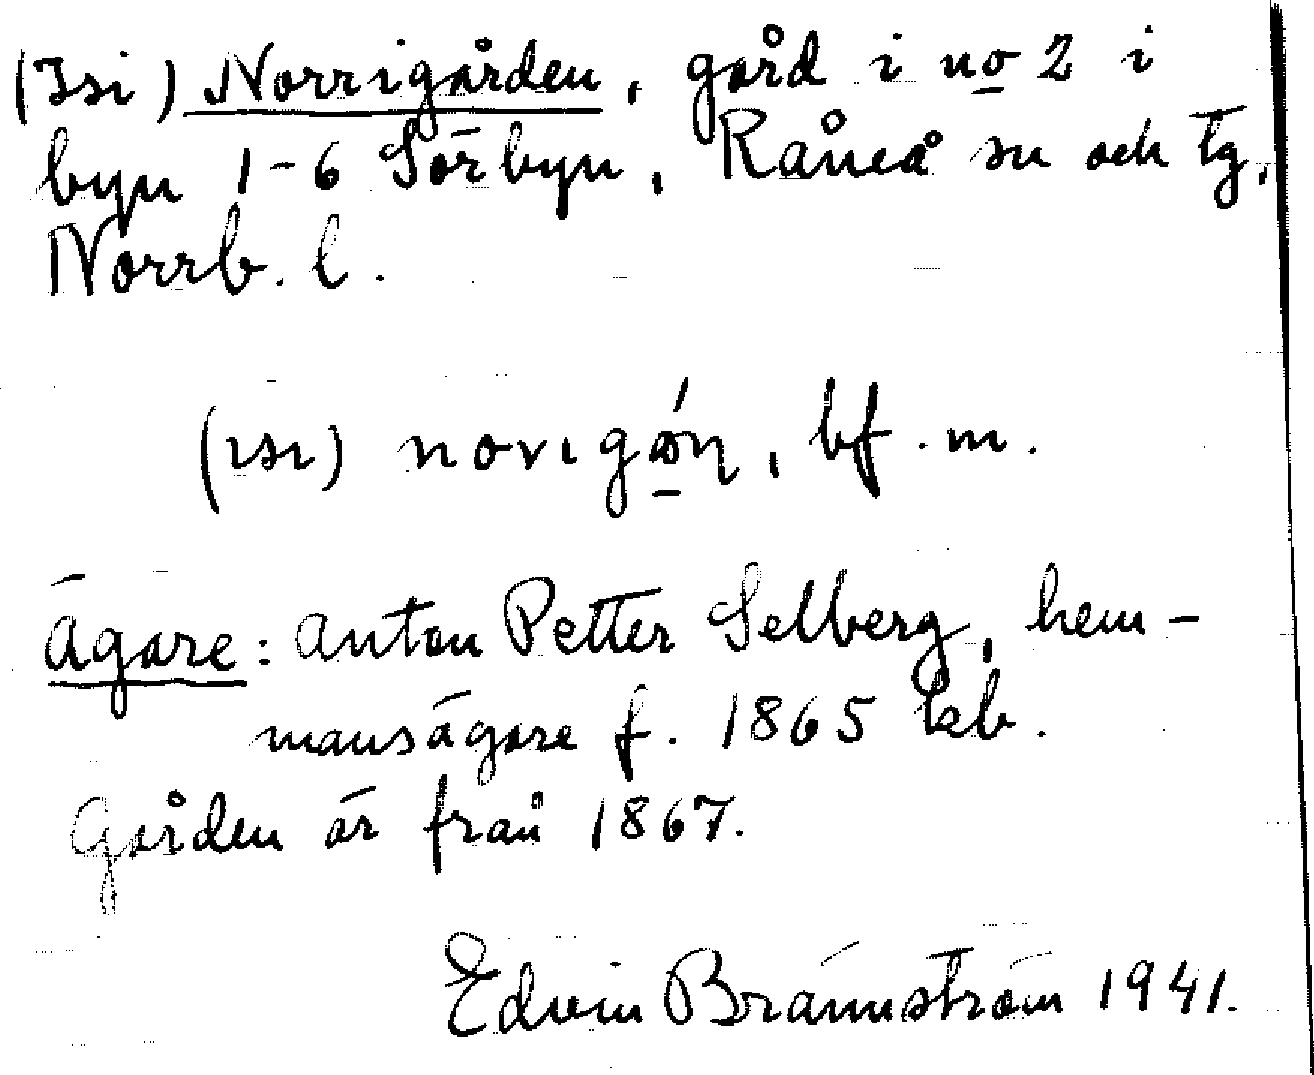 (Isi) Norrigården, gård i no 2 i
byn 1-6 Sörbyn, Råneå sn och tg,
Norrb. l.
(ısı) novıgǻn̩, bf. m.
Ägare: Anton Petter Selberg, hem-
mansägare f. 1865 kb.
Gården är från 1867.
Edvin Brännström 1941.